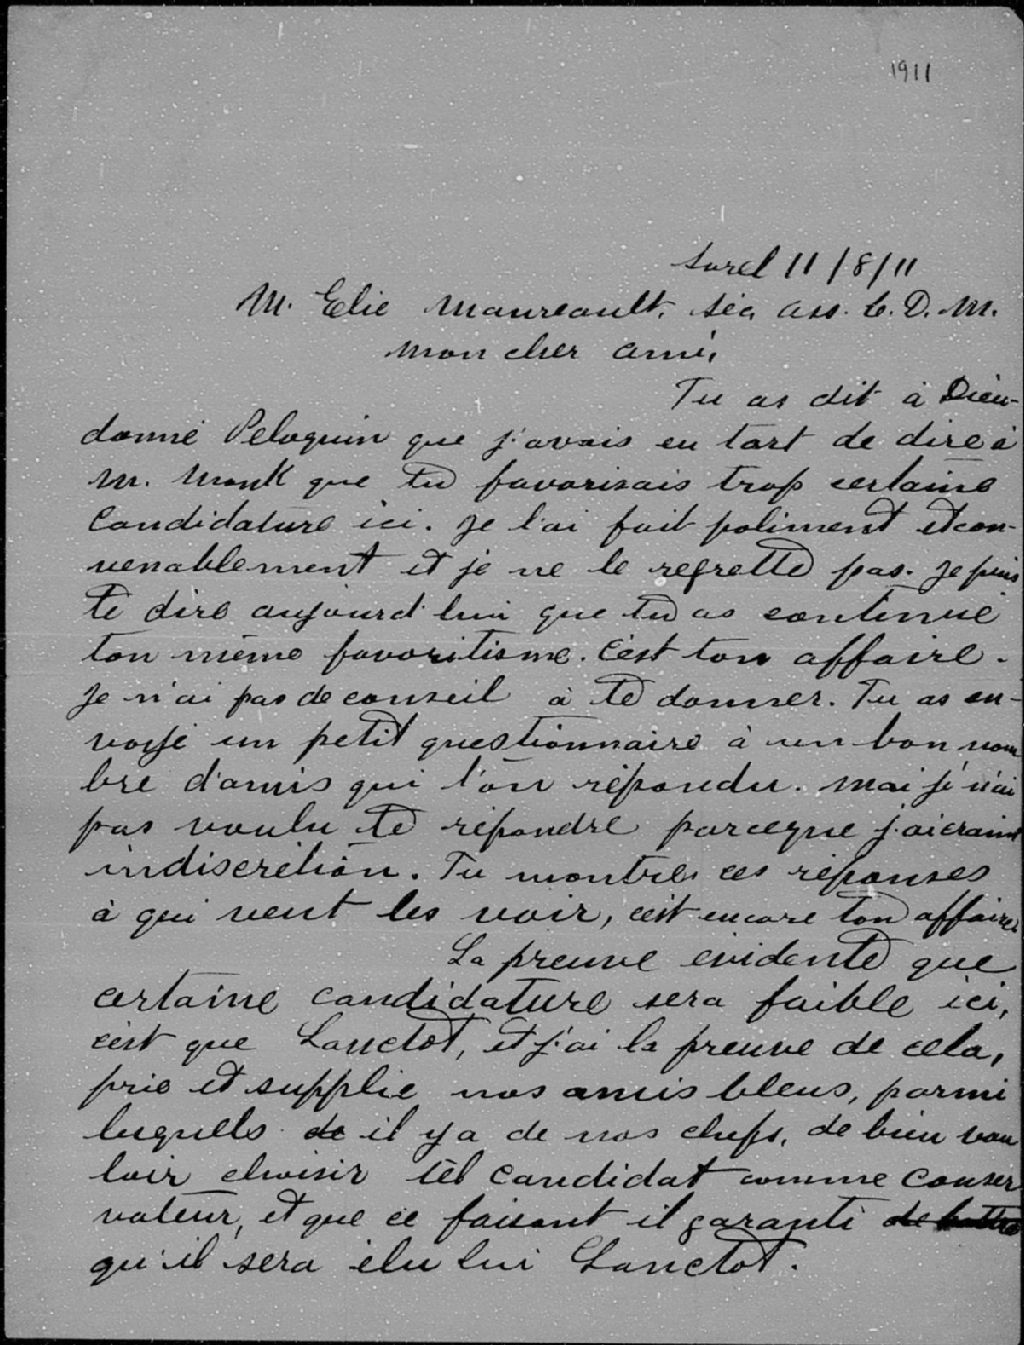 1911
Sorel 11/8/11
M. Elie Maureault. séc. ass. C. D. M.
Mon cher ami,
Tu as dit à Dieu-
donné Peloquin que j'avais eu tort de dire à
M. Monk que tu favorisais trop certaine
candidature ici. Je l'ai fait poliment et con-
venablement et je ne le regrette pas. Je puis
te dire aujourd'hui que tu as continué
ton même favoritisme. C'est ton affaire.
Je n'ai pas de conseil à te donner. Tu as en-
voyé un petit questionnaire à un bon nom
bre d'amis qui t'on répondu. Moi je n'ai
pas voulu te répondre parceque j'ai craint
indiscrétion. Tu montres ces réponses
à qui veut les voir, c'est encore ton affaire.
La preuve evidente que
certaine candidature sera faible ici,
c'est que Lanctot, et j'ai la preuve de cela,
prie et supplie nos amis bleus, parmi
lequels de il y a de nos chefs, de bien vou
loir choisir tel candidat comme conser
vateur, et que ce faisant il garanti de
qu'il sera élu lui Lanctot.